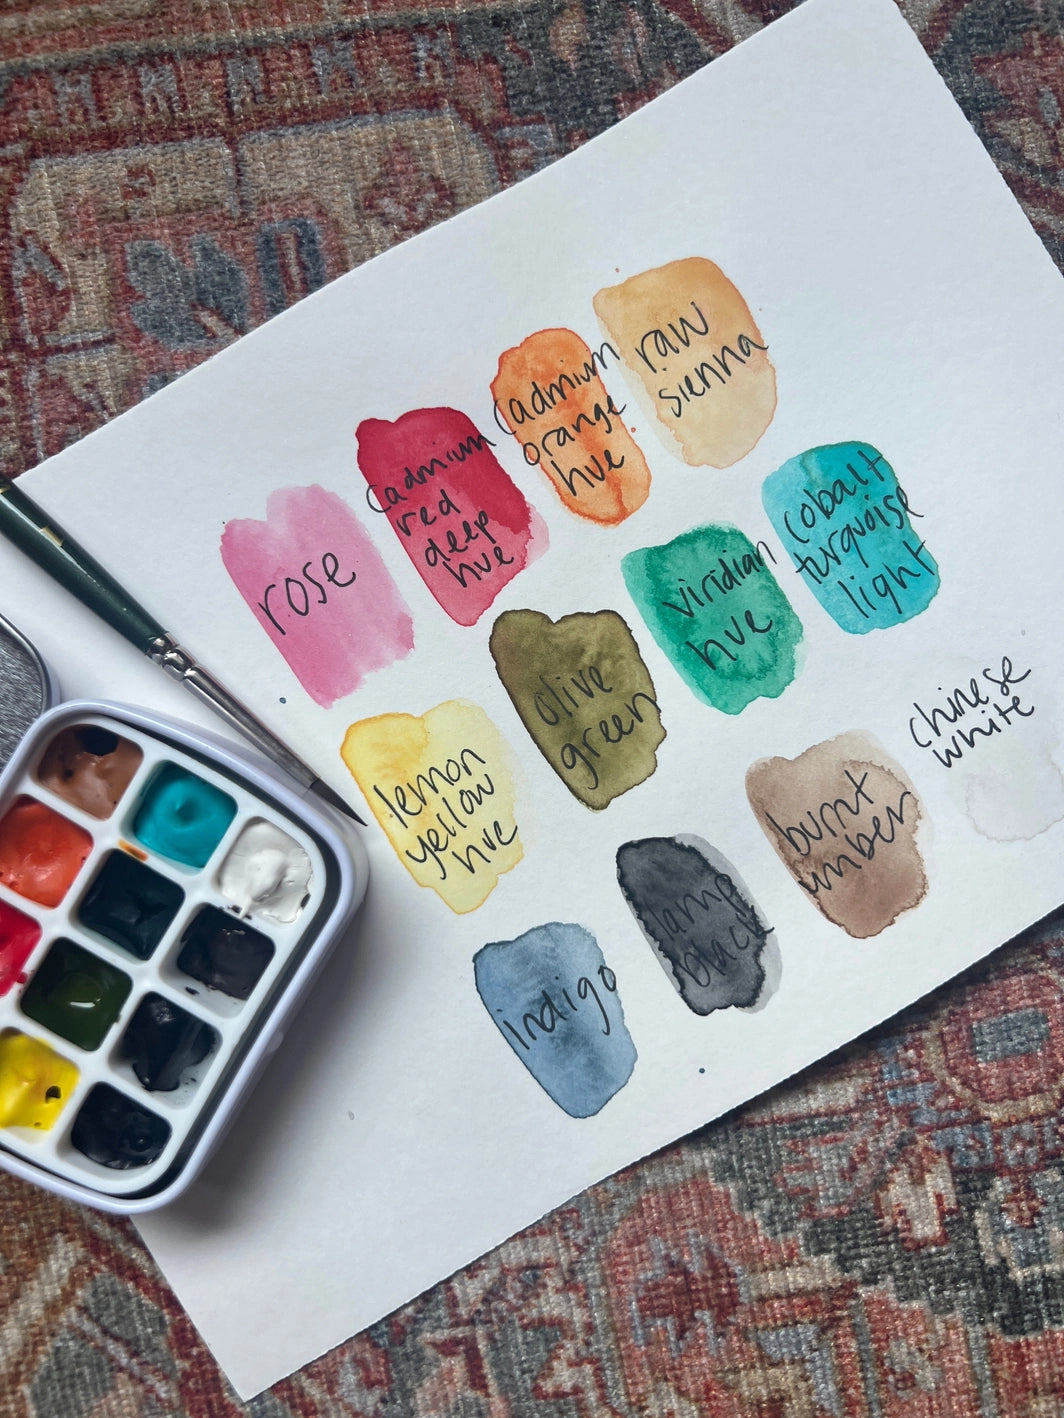 rose
Cadmium
red
deep
hue
Cadmium
orange
hue
raw
sienna
lemon
yellow
hue
olive
green
viridian
hue
Cobalt
turquoise
light
indigo
lamp
black
burnt
umber
chinese
white